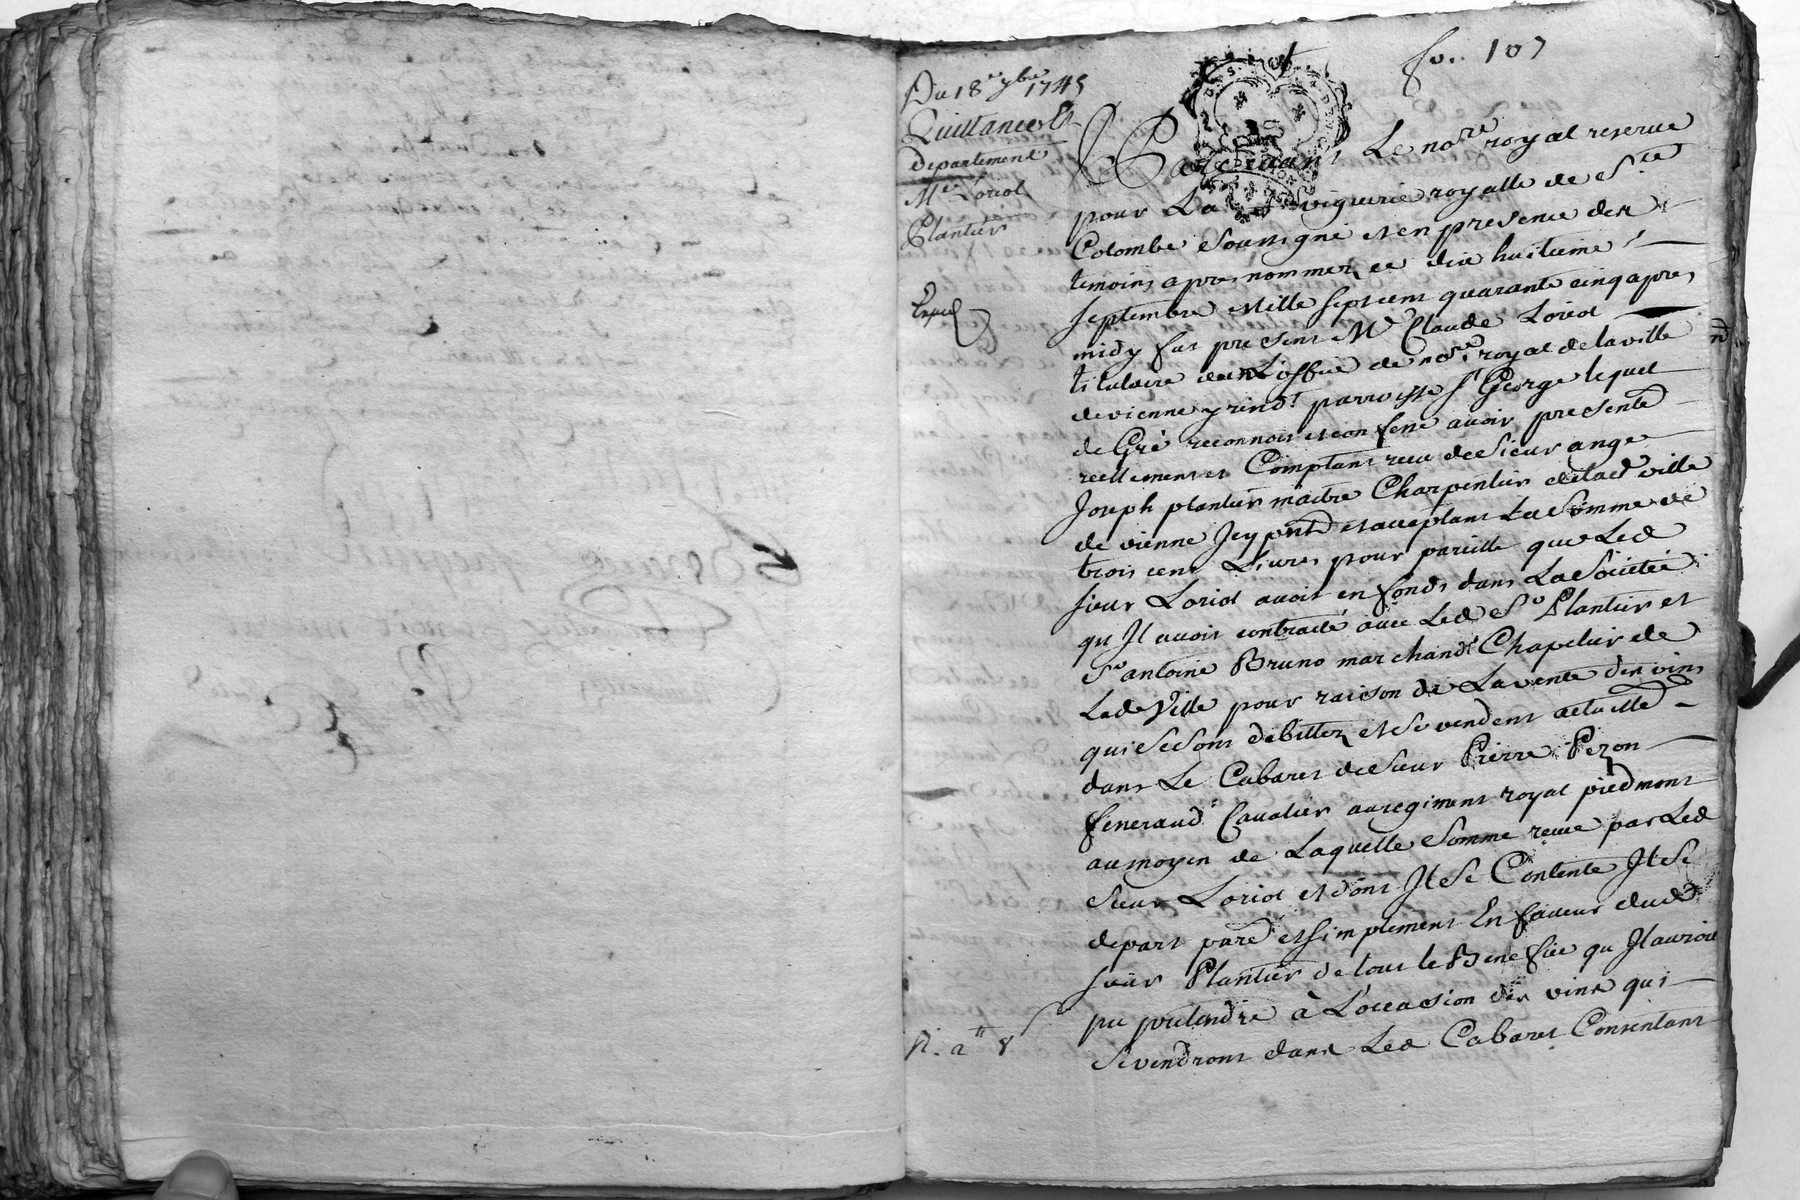 fo. 107
Du 18e 7bre 1745
Quittance et
departement
Me Loriot
Plantier
Exped
Pardevant Le nore royal reservé
pour La viguerie royalle de Ste
Colombe soussigné et en presence des
temoins apres nommez ce dix huitieme
septembre Mille sept cent quarante cinq apres
midy fut present Me Claude Loriot
titulaire de L'office de nore royal de la ville
de vienne y resid.t parroisse St George lequel
de Gré reconnoit et confesse avoir presentem.t
reellement et Comptant receu de Sieur ange
Joseph plantier maitre Charpentier de lad ville
de vienne Jcy pnt et acceptant La Somme de
trois cent Livres pour pareille que Led
sieur Loriot avoit en fonds dans La Societé
qu Jl avoit contracté avec Led Sr Plantier et
Sr antoine Bruno marchand Chapelier de
Lade Ville pour raison de La vente des vins
qui se sont debittez et se vendent actuellem.t
dans Le Cabaret de Sieur Pierre Pezon
feneraud Cavalier au regiment royal piedmont
au moyen de Laquelle Somme receue par Led
Sieur Loriot et dont Jl se Contente Jl se
depart pure.t et simplement En faveur dud
sieur Plantier de tout le Benefice qu Jl auroit
pu pretendre à L'occasion des vins qui
se vendront dans Led Cabaret Consentant